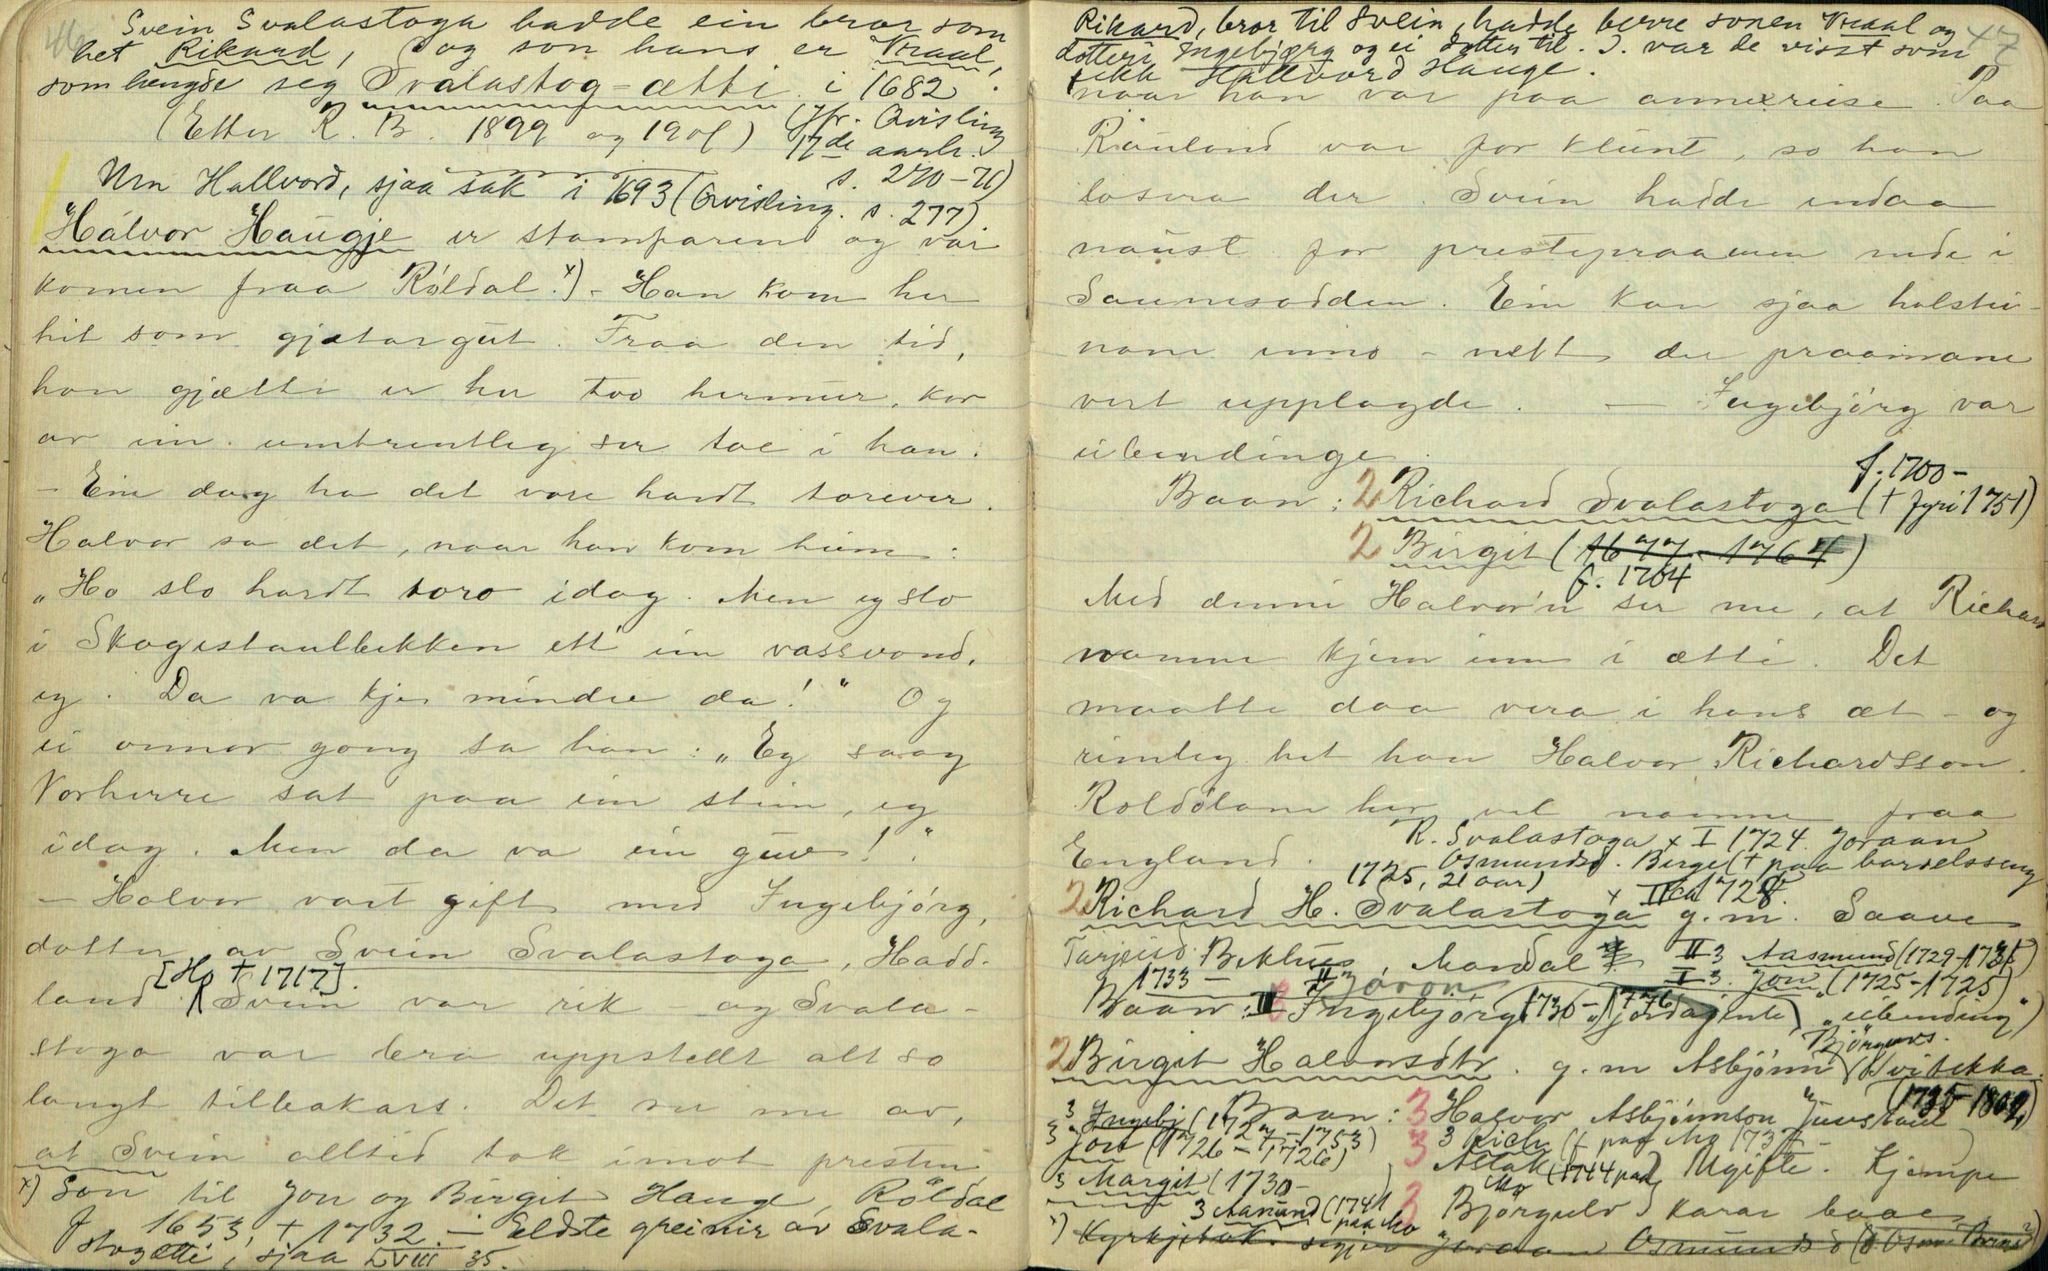 46
Svein Svalastoga hadde ein bror som
het Rikard, og son hans er Vraal,
som hengde seg Svalastog-ætti i 1682.
(Etter R. B. 1899 og 190 )
(Jfr. Qvisling
17de aarh.
s. 270-71)
Um Hallvord, sjaa sak i 1693 (Qvisling. s. 277)
Halvor Haugje er stamfaren og var
komen fraa Röldal x). - Han kom her
hit som gjætargut. Fraa den tid,
han gjætte er her too hermur, kor
av ein umtrentleg ser tae i han:
- Ein dag ha det vore hardt torever.
Halvor sa det, naar han kom heim:
"Ho slo hardt toro idag. Men eg slo
i Skogestaulbekken ett ein vassvond,
eg. Da va kje mindre da!" Og
ei onnor gong sa han: "Eg saag
Vorherre sat paa ein stein, eg
idag. Men da va ein guv!".
- Halvor vart gift med Ingebjörg,
dotter av Svein Svalastoga, Hadd-
land. [Ho † 1717]. Svein var rik - og Svala-
stoga var bra uppstellt alt so
langt tilbakars. Det ser me av,
at Svein alltid tok imot presten,
x) Son til Jon og Birgit Hauge, Röldal
f 1653, † 1732. - Eldste greinir av Svala-
stogætti, sjaa LVIII 35.
47
Rikard, bror til Svein, hadde berre sonen Vraal og
dotteri Ingebjørg og ei dotter til. I. var de visst som
fekk Hallvord Hauge.
naar han var paa annexreise. Paa
Rauland var for klunt, so han
losera der. Svein hadde endaa
naust for presteprammen nede i
Saunesodden. Ein kan sjaa holstei-
nane enno - nett der praamane
vert upplagde. — Ingebjörg var
eibeindinge.
Baan: 2 Richard Svalastoga f. 1700- († fyri 1751)
2 Birgit (1677-1764)
f. 1704
Med denne Halvor'n ser me, at Richard
namne kjem inn i ætti. Det
maatte daa vera i hans æt - og
rimeleg het han Halvor Richardsson.
Roldölane her vel namne fraa
England.
R. Svalastoga x I 1724 Joraan
Osmundsd. Berge († paa barselsseng
1725, 21 aar)
x II ca 1728.
2 Richard H. Svalastoga g. m. Saave
Tarjeid. Bekhus, Mandal II 3 Aasmund (1729-1735)
I 3. Jon (1725-1725)
1733 - II 3 Joron
Baan: III 3 Ingebjörg (1736-1776) "eibeinding")
2 Birgit Halvorsdtr. g. m Asbjönn Björgulvs. Kvitekka.
Baan: 3 Halvor Asbjönnson Juvstaul (1735-1809)
3 Ingebj (1727-1753)
3 Jon (1726-1726)
3 Rich
3 Aslak (1744 paa Mo) Ugifte. Kjempe
3 Margit (1730-
3 Aanund (1741 paa Mo
3 Björgulv } karar baae
x) Kyrkjebok. segjer Joraan Osmundsd